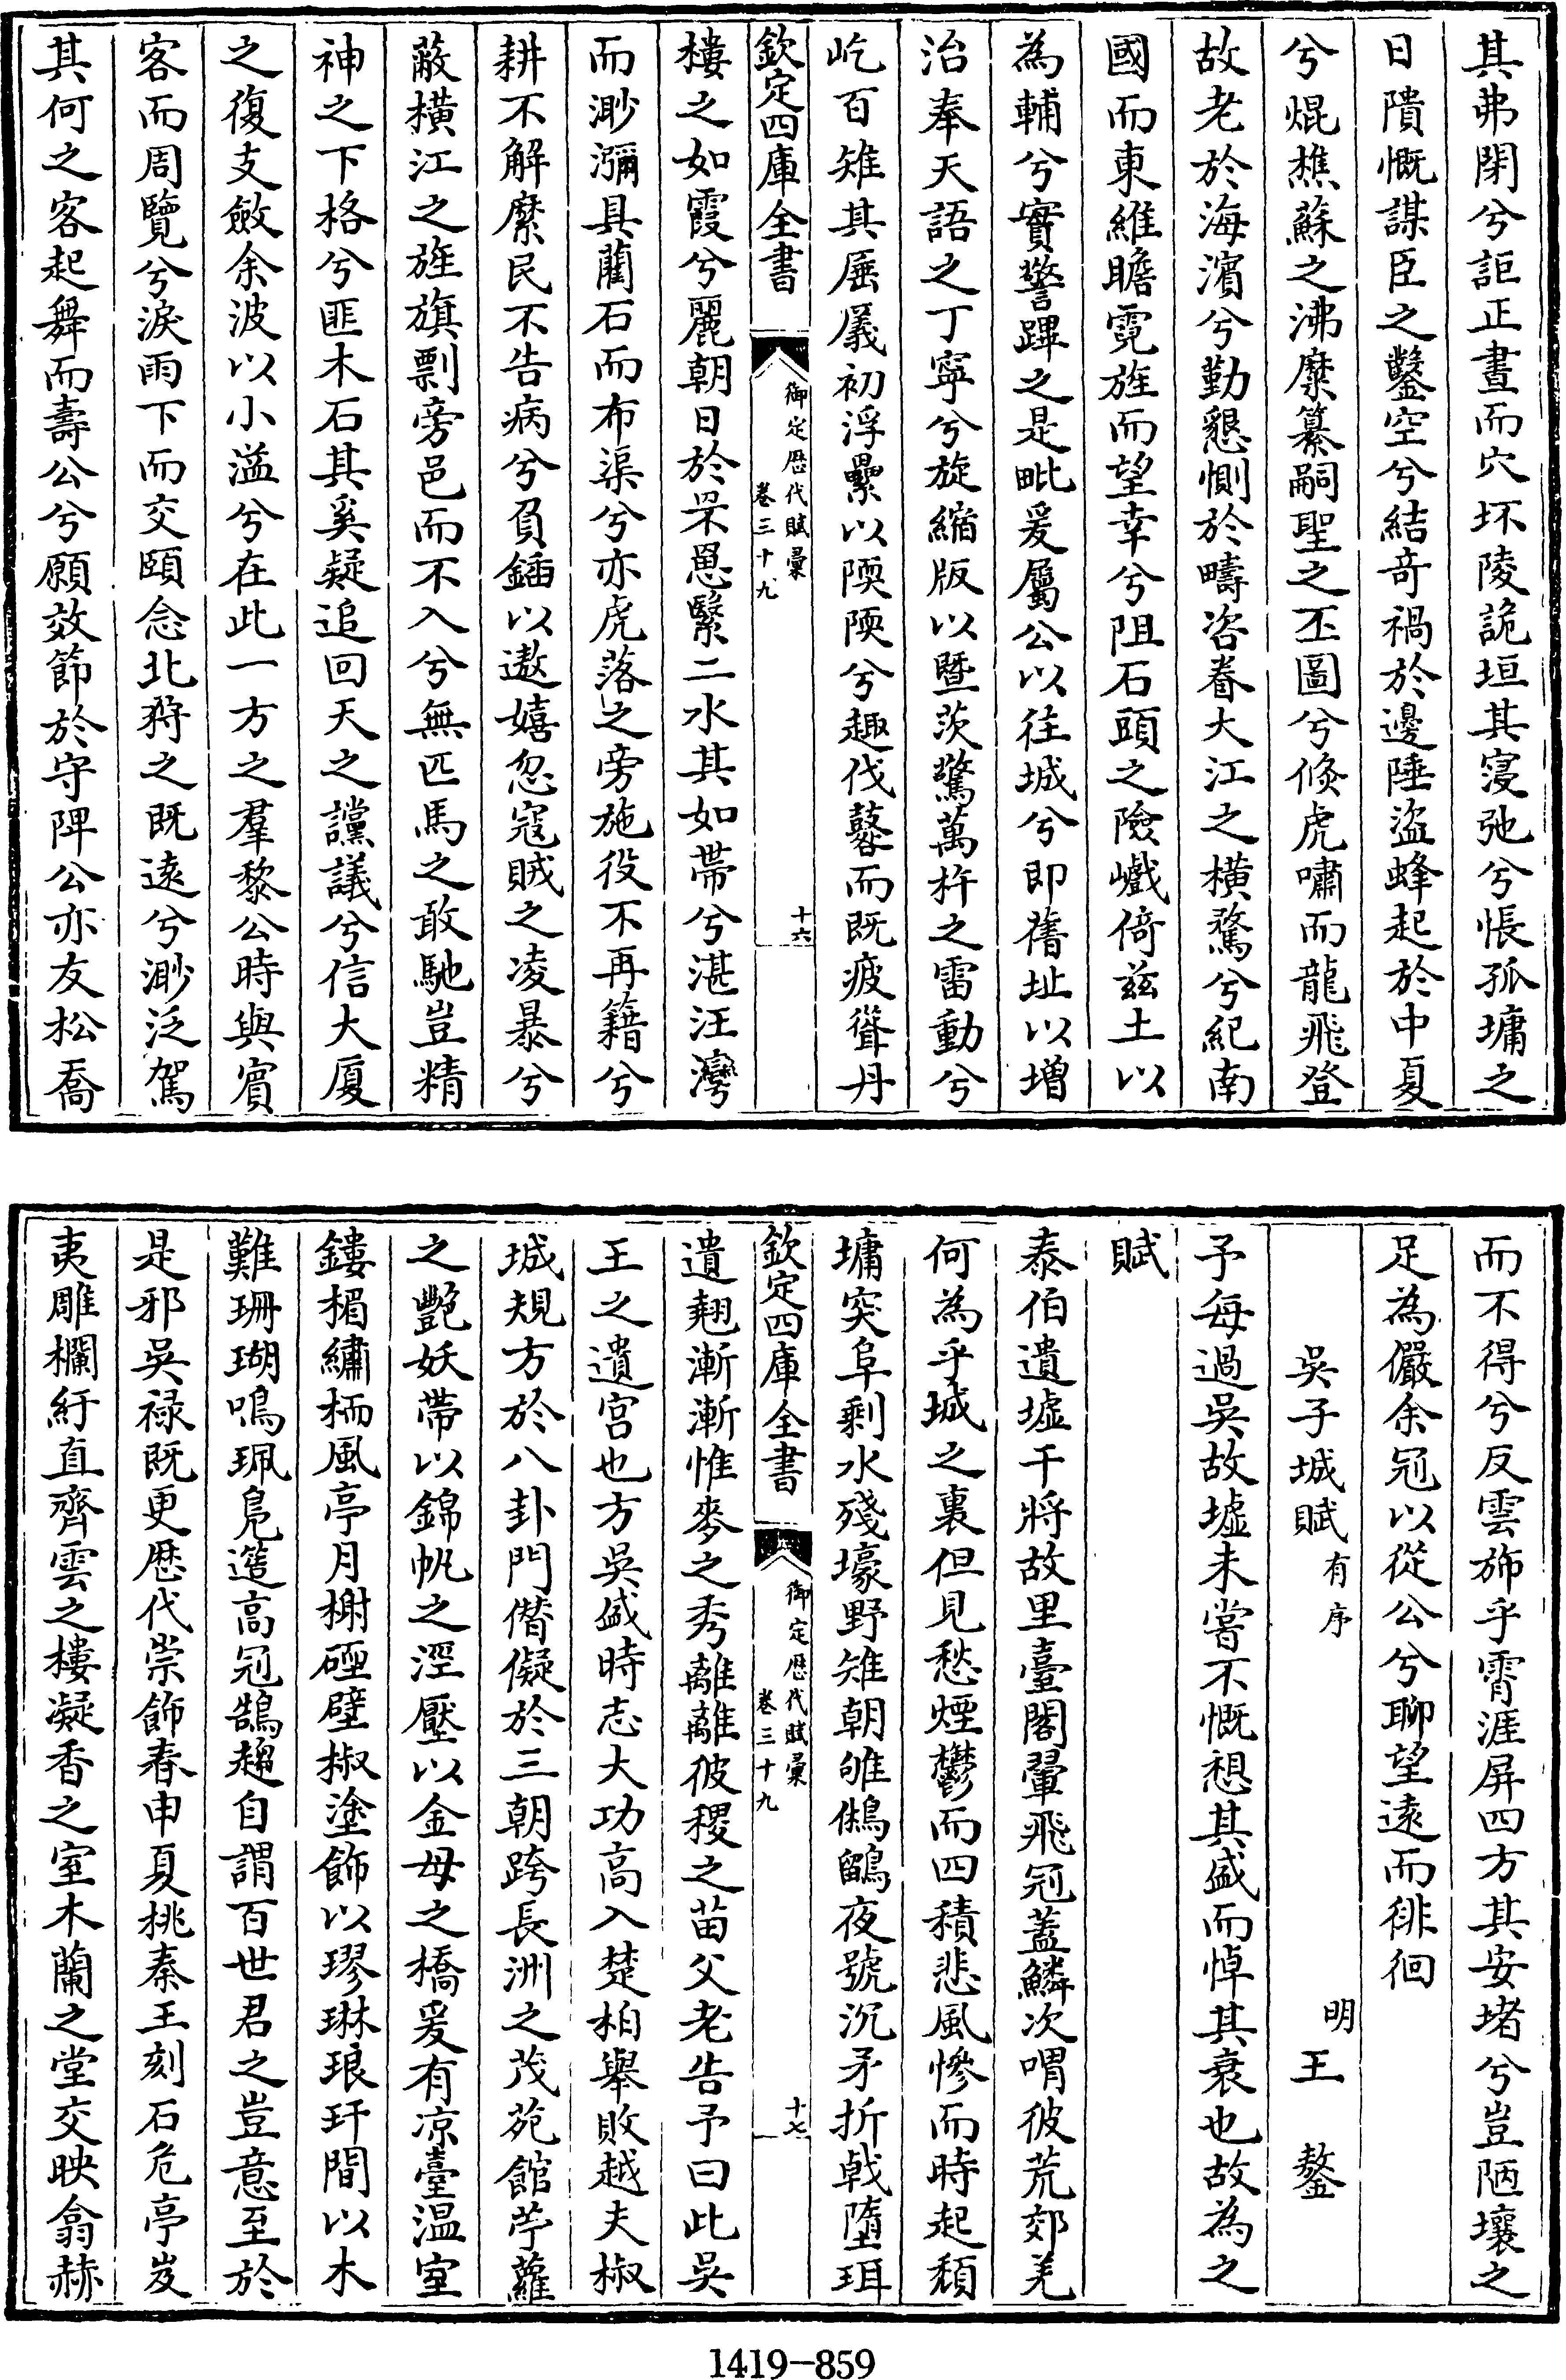 其弗閉兮詎正晝而穴坏陵詭垣其寖弛兮悵孤墉之
日隤慨謀臣之鑿空兮結竒禍於邊陲盜蜂起於中夏
兮焜樵蘇之沸糜纂嗣聖之丕圖兮倐虎嘯而龍飛登
故老於海濱兮勤懇惻於疇咨眷大江之橫騖兮紀南
國而東維瞻霓旌而望幸兮阻石頭之險巇倚兹土以
為輔兮實警蹕之是毗爰屬公以往城兮即舊址以増
治奉天語之丁寧兮旋縮版以暨茨驚萬杵之雷動兮
屹百雉其屬㠖初浮纍以陾陾兮趣伐鼛而既疲聳丹
欽定四庫全書
御定厯代賦彙
卷三十九
十六
樓之如霞兮麗朝日於罘罳繄二水其如帶兮湛汪灣
而渺瀰具藺石而布渠兮亦虎落之旁施役不再籍兮
耕不解縻民不告病兮負鍤以遨嬉忽寇賊之凌暴兮
蔽橫江之旌旗剽旁邑而不入兮無匹馬之敢馳豈精
神之下格兮匪木石其奚疑追回天之讜議兮信大厦
之復支斂余波以小溢兮在此一方之羣黎公時與賓
客而周覽兮淚雨下而交頤念北狩之既逺兮渺泛駕
其何之客起舞而壽公兮願效節於守陴公亦友松喬
而不得兮反雲斾乎霄涯屏四方其安堵兮豈陋壤之
足為儼余冠以從公兮聊望逺而徘徊
吳子城賦有序
明 王鏊
予每過吳故墟未嘗不慨想其盛而悼其衰也故為之
賦
泰伯遺墟干將故里臺閣翬飛冠蓋鱗次喟彼荒郊羌
何為乎城之裏但見愁煙鬱而四積悲風慘而時起頹
墉突阜剩水殘壕野雉朝雊鵂鶹夜號沉矛折戟墮珥
欽定四庫全書
御定厯代賦彙
卷三十九
十七
遺翹漸漸惟麥之秀離離彼稷之苗父老告予曰此吳
王之遺宫也方吳盛時志大功高入楚柏舉敗越夫椒
城規方於八卦門僭儗於三朝跨長洲之茂苑館苧蘿
之艷妖帶以錦帆之涇壓以金母之橋爰有凉臺温室
鏤楣繡栭風亭月榭砸壁椒塗飾以璆琳琅玕間以木
難珊瑚鳴珮鳬趨高冠鵠趨自謂百世君之豈意至於
是邪吳禄既更厯代崇飾春申夏桃秦王刻石危亭岌
夷雕欄紆直齊雲之樓凝香之室木蘭之堂交映翕赫
1419-859